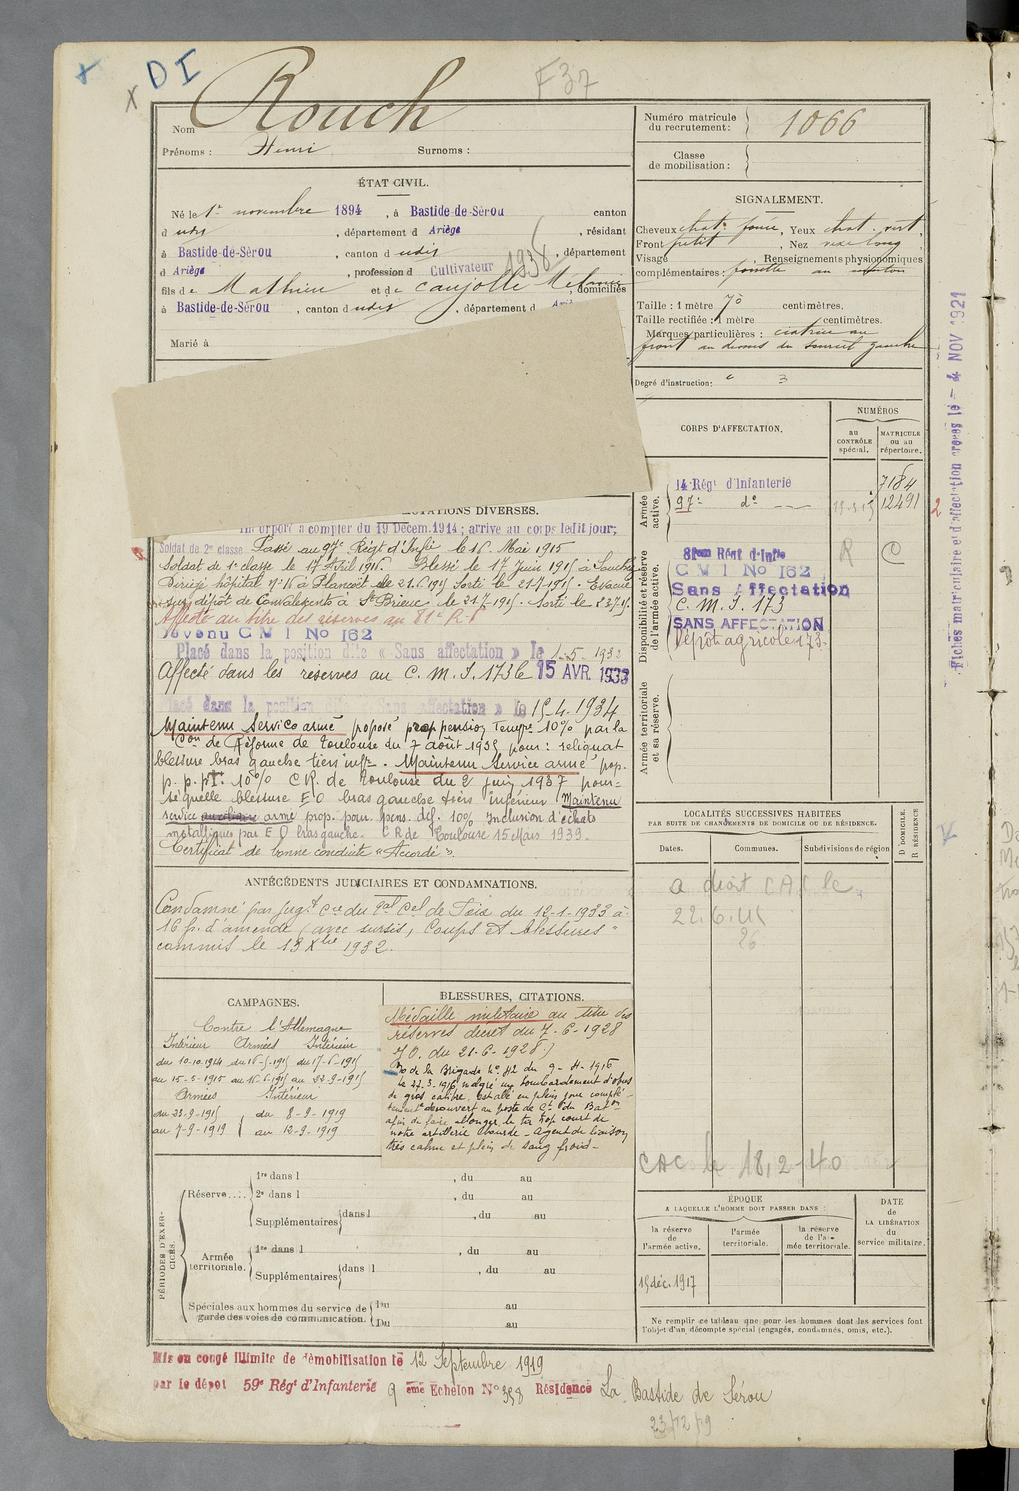 x DI
x
F37
Nom Rouch
Prénoms : Henri Surnoms :
Numéro matricule du recrutement : 1066
Classe de mobilisation :
ÉTAT CIVIL.
Né le 1er novembre 1894, à Bastide-de-Sérou canton
d udit, département d Ariège, résidant
à Bastide-de-Sérou, canton d udit, département
d Ariège, profession d Cultivateur 1936
fils de Mathieu et de Caujolle Mélanie, domiciliés
à Bastide-de-Sérou, canton d udit, département d
Marié à
SIGNALEMENT.
Cheveux chat. foncé, Yeux chat. vert,
Front petit, Nez
Visage Renseignements physionomiques
complémentaires : au menton
Taille : 1 mètre 70 centimètres.
Taille rectifiée : 1 mètre centimètres.
Marques particulières : cicatrice au
front au dessus du sourcil gauche
Degré d'instruction : 3
CORPS D'AFFECTATION.
NUMÉROS
au CONTRÔLE spécial.
MATRICULE ou au répertoire.
Armée active.
14 Régt d'Infanterie 7184
97e do 12491
2
Disponibilité et réserve de l'armée active.
81eme Régt d'Infie R C
C M I No 162
Sans Affectation
C. M. I. 173
SANS AFFECTATION
Dépôt agricole 173.
Armée territoriale et sa réserve.
Fiches matriculaire et d'affectation créées le - 4 NOV 1921
MUTATIONS DIVERSES.
Incorporé à compter du 19 Décem. 1914 ; arrivé au corps ledit jour ;
Soldat de 2e classe Passé au 97e Régt d'Infie le 16 Mai 1915
Soldat de 1e classe le 17 Avril 1916. Blessé le 17 Juin 1915 à Souchez
Dirigé hôpital no 16 à Plancoët le 21.6.1915 Sorti le 21-7-1915 - Evacué
sur dépôt de Convalescents à St Brieuc le 21.7.1915. Sorti le 23.7.15.
Affecté au titre des réserves au 81e R.I
Devenu C M I No 162
Placé dans la position dite « Sans affectation » le 1-5-1932
Affecté dans les réserves au C. M. I. 173 le 15 AVR. 1933
Placé dans la position dite « Sans affectation » le 15.4.1934
Maintenu Service armé proposé pr pension Tempre 10% par la
Con de Réforme de Toulouse du 7 août 1935 pour : reliquat
blessure bras gauche tiers infr. Maintenu Service armé prop.
p. p. pt. 10% CR. de Toulouse du 2 juin 1937 pour :
séquelle blessure E O bras gauche tiers inférieur Maintenu
service auxiliaire armé prop. pour pens. déf. 10% Inclusion d'éclats
métalliques par E O bras gauche. CR de Toulouse 15 Mars 1939.
Certificat de bonne conduite « Accordé ».
ANTÉCÉDENTS JUDICIAIRES ET CONDAMNATIONS.
Condamné par Jugt du de Foix du 12-1-1933 à
16 fr. d'amende (avec sursis) "Coups et blessures"
commis le 13 Xbre 1932.
LOCALITÉS SUCCESSIVES HABITÉES
PAR SUITE DE CHANGEMENTS DE DOMICILE OU DE RÉSIDENCE.
Dates. Communes. Subdivisions de région
D DOMICILE. R RÉSIDENCE
a droit CAC le
22.6.
26
CAC le 18.2.40
CAMPAGNES.
Contre l'Allemagne
Intérieur Armées Intérieur
du 10-10-1914 du 16-5-1915 du 17-6-1915
au 15-5-1915 au 16-6-1915 au 22-9-1915
Armées Intérieur
du 23-9-1915 du 8-9-1919
au 7-9-1919 au 12-9-1919
BLESSURES, CITATIONS.
Médaille militaire au titre des
réserves décret du 7-6-1928
J O. du 21-6-1928)
O de la Brigade No 42 du 9-4-1916
le 27-3-1916 malgré un bombardement d'obus
de gros calibre, est allé en plein jour complè-
tement découvert au poste de Ct du Baton
afin de faire allonger le tir trop court de
notre artillerie lourde - Agent de liaison
très calme et plein de sang froid -
PÉRIODES D'EXERCICES.
Réserve.... 1re dans l , du au
2e dans l , du au
Supplémentaires dans l , du au
Armée territoriale. 1re dans l , du au
Supplémentaires dans l , du au
Spéciales aux hommes du service de garde des voies de communication. Du au
Du au
ÉPOQUE
A LAQUELLE L'HOMME DOIT PASSER DANS :
la réserve de l'armée active.
l'armée territoriale.
la réserve de l'armée territoriale.
DATE de LA LIBÉRATION du service militaire.
15 déc. 1917
Ne remplir ce tableau que pour les hommes dont les services font
l'objet d'un décompte spécial (engagés, condamnés, omis, etc.).
Mis en congé illimité de démobilisation le 12 Septembre 1919
par le dépôt 59e Régt d'Infanterie 9 eme Echelon No 358 Résidence La Bastide de Sérou
23/12/19